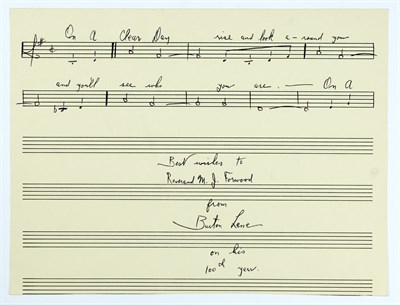 On A Clear Day rise and look a-round you
and you'll see who you are. — On A
Best wishes to
Reverend M. J. Forwood
from
Burton Lane
on his
100th year.